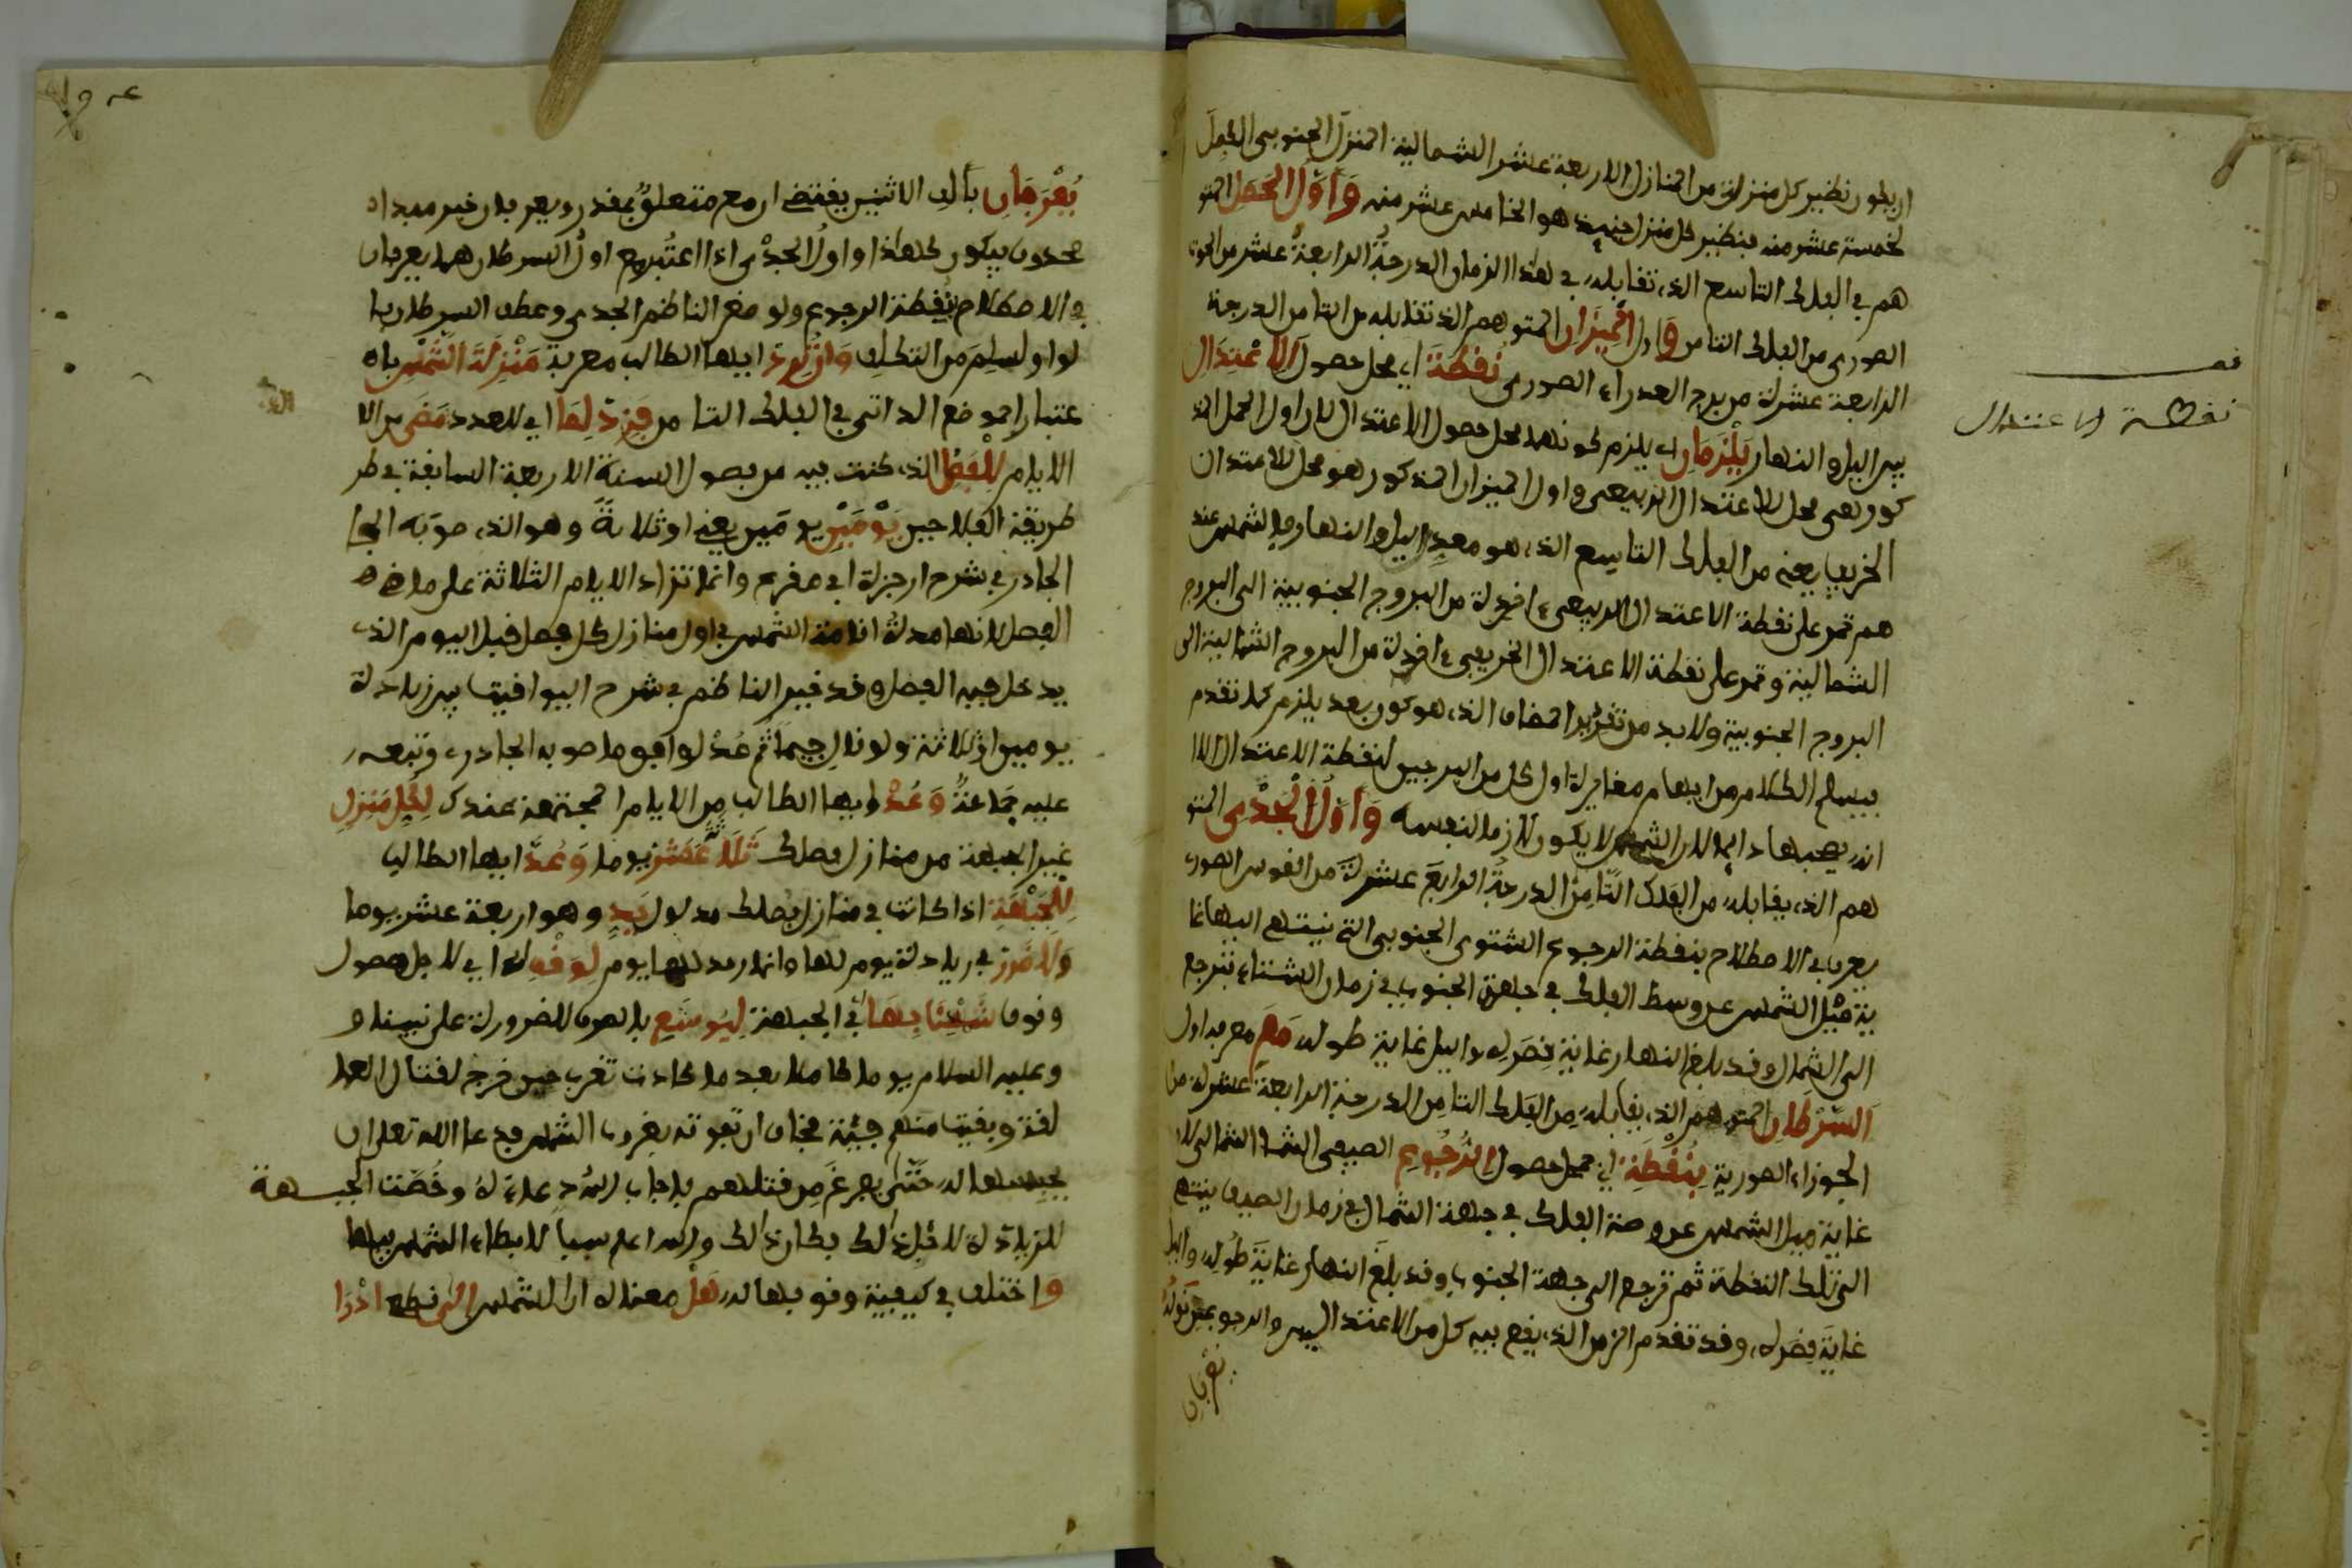 ان يكون نظير كل منزلة من المنازل الاربعة عشر الشمالية المنزل الجنوبي المكمل
لخمسة عشر منه فنظير كل منزل حينئذ هو الخامس عشر منه وَأَوَّلُ الحَمَلِ المتو
هم في الفلك التاسع الذي تقابله في هذا الزمان الدرجةُ الرابعةُ عشر من الحوت
الصوري من الفلك الثامن وَاول المِيزَانِ المتوهم الذي تقابله من الثامن الدرجة
الرابعة عشرة من برج العذراء الصوري نُقْطَةَ اي محل حصول الاعْتِدَالِ
بين اليل والنهار يَلْزَمَانِ اي يلزم كونهما محل حصول الاعتدال لان اول الحمل المذ
كور هي محل للاعتدال الربيعي واول الميزان المذكور هو محل للاعتدال
الخريفي يعني من الفلك التاسع الذي هو معدل اليل والنهار والشمس عند
هم تمر على نقطة الاعتدال الربيعي اخذة من البروج الجنوبية الى البروج
الشمالية وتمر على نقطة الاعتدال الخريفي اخذة من البروج الشمالية الى
البروج الجنوبية ولا بد من تقرير المضاف الذي هو كون بعد يلزم كما تقدم
فيسلم الكلام من ايهام مغايرة اول كل من البرجين لنقطة الاعتدال الا
ان الشيء لا يكون لازما لنفسه وَأَوَّلُ الْجَدْيِ المتو
هم الذي يقابله من الفلك الثامن الدرجةُ الرابعةَ عشرة من القوس الصوري
يعرف في الاصطلاح بنقطة الرجوع الشتوي الجنوبي التي ينتهي اليها غا
ية ميل الشمس عن وسط الفلك في جهة الجنوب في زمان الشتاء فترجع
الى الشمال وقد بلغ النهار غاية قصره واليل غاية طوله مَعَ معرفة اول
السَّرَطَانِ المتوهم الذي يقابله من الفلك الثامن الدرجة الرابعة عشرة من
الجوزاء الصورية بِنُقْطَةِ اي محل حصول الرُّجُوعِ الصيفي الشمالي لان
غاية ميل الشمس عن وسط الفلك في جهة الشمال في زمان الصيف ينتهي
الى تلك النقطة ثم ترجع الى جهة الجنوب وقد بلغ النهار غايَةَ طُوله واليل
غايَةَ قصره، وقد تقدم الزمن الذي يقع فيه كل من الاعتدالين والرجوعين
يعْرفَانِ
قف
نقطة الاعتدال
يُعْرَفَانِ بألف الاثنين يقتضي ان مع متعلق بمقدر ويعرفان خبر مبتدا
محذوف فيكون هكذا واولُ الجدْي اذا اعتُبر مع اول السرطان هما يعرفان
في الاصطلاح بنقطة الرجوع ولو رفع الناظم الجدي وعطف السرطان با
لواو لسلم من التكلف وَانْ تُرِدْ ايها الطالب معرفة مَنْزِلَةَ الشَّمْسِ با
عتبار الموضع الذاتي في الفلك الثامن فَزِدْ لِمَا اي للعدد مَضَى من الا
الايام لِلْفَصْلِ الذي كنت فيه من فصول السنة الاربعة السابقة في طر
طريقة الفلاحين يَوْمَيْنِ يومين يعني او ثلاثةً وهو الذي صوبه الجا
الجادري في شرح ارجوزة ابي مقرع وانما تزاد الايام الثلاثة على ما مضى
الفصل لانها مدة اقامة الشمس في اول منازل كل فصل قبل اليوم الذي
يدخل فيه الفصل وقد خير الناظم في شرح اليواقيت بين زيادة
يومين او ثلاثة ولو قال جيما ثم عُدْ لوافق ما صوبه الجادري وتبعه
عليه جماعة وَعُدْ ايها الطالب من الايام المجتمعة عندك لِكُلِّ مَنْزِلِ
غير الجبهة من منازل فصلك ثَلَاثَ عَشَرْ يوما وَعُدَّ ايها الطالب
لِلْجَبْهَةِ اذا كانت في منازل فصلك مدلول يَدٍ وهو اربعة عشر يوما
وَلَا ضَرَرْ في زيادة يوم لها وانما زيد لها يوم لِوَقْفِ اي لاجل حصول
وقوف شَمْسِنَا بِهَا اي في الجبهة لِيُوشَعِ بالصرف للضرورة على نبينا و
وعليه السلام يوما كاملا بعد ما كادت تغرب حين خرج لقتال العما
لقة وبقيت منهم فيئة فخاف ان تفوته بغروب الشمس فدعا الله تعالى ان
يحبسها له حَتَّى يفرغ من قتلهم فاجاب الله دعاءَه له وخُصَّت الجبهة
للزيادة لاجل ذلك فكان ذلك والله اعلم سببا لابطاء الشمس فيها
واختلف في كيفية وقوفها له هَلْ معناه ان الشمس